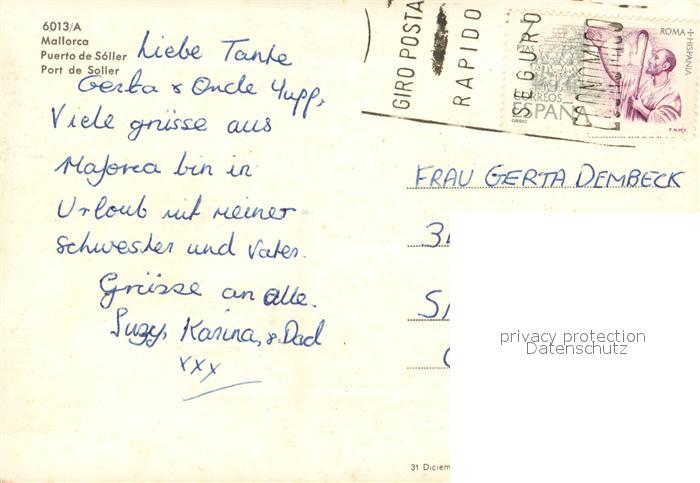 6013/A
Mallorca
Puerto de Sóller
Port de Soller
Liebe Tante
Gerta & Oncle Yupp,
Viele grüsse aus
Majorca bin in
Urloub mit meiner
Schwester und Vater.
Grüsse an alle.
Suzy, Karina, & Dad
xxx
GIRO POSTAL
RAPIDO
SEGURO
ECONOMICO
PTAS
CORREOS
ESPAÑA
ROMA + HISPANIA
F.N.M.T.
FRAU GERTA DEMBECK
privacy protection
Datenschutz
31 Diciem